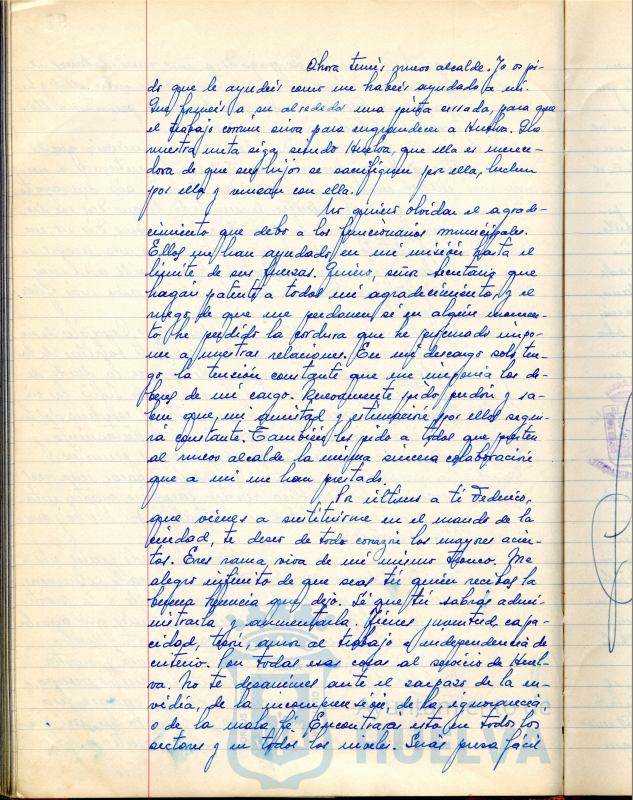 Ahora tenéis nuevo alcalde. Yo os pi-
do que le ayudéis como me habéis ayudado a mí.
Que forméis a su alrededor una piña cerrada, para que
el trabajo común sirva para engrandecer a Huelva. Que
nuestra meta siga siendo Huelva, que ella es merece-
dora de que sus hijos se sacrifiquen por ella, luchen
por ella y venzan con ella.
No quiero olvidar el agrade-
cimiento que debo a los funcionarios municipales.
Ellos me han ayudado en mi misión hasta el
límite de sus fuerzas. Quiero, señor Secretario que
hagais patente a todos mi agradecimiento, y el
ruego de que me perdonen si en algún momen-
to he perdido la cordura que he procurado impo-
ner a nuestras relaciones. En mi descargo solo ten-
go la tensión constante que me imponía los de-
beres de mi cargo. Nuevamente pido perdón y sa-
ben que mi amistad y estimación por ellos segui-
rá constante. También les pido a todos que presten
al nuevo alcalde la misma sincera colaboración
que a mi me han prestado.
Por último a ti Federico,
que vienes a sustituirme en el mando de la
ciudad, te deseo de todo corazón los mayores acier-
tos. Eres rama viva de mi mismo tronco. Me
alegro infinito de que seas tú quien recibas la
buena herencia que dejo. Sé que tú sabrás admi-
nistrarla y aumentarla. Tienes juventud, capa-
cidad, tesón, amor al trabajo e independencia de
criterio. Pon todas esas cosas al servicio de Huel-
va. No te desanimes ante el zarpazo de la en-
vidia, de la incomprensión, de la ignorancia
o de la mala fé. Encontrarás esto en todos los
sectores y en todos los niveles. Serás presa fácil
HUELVA